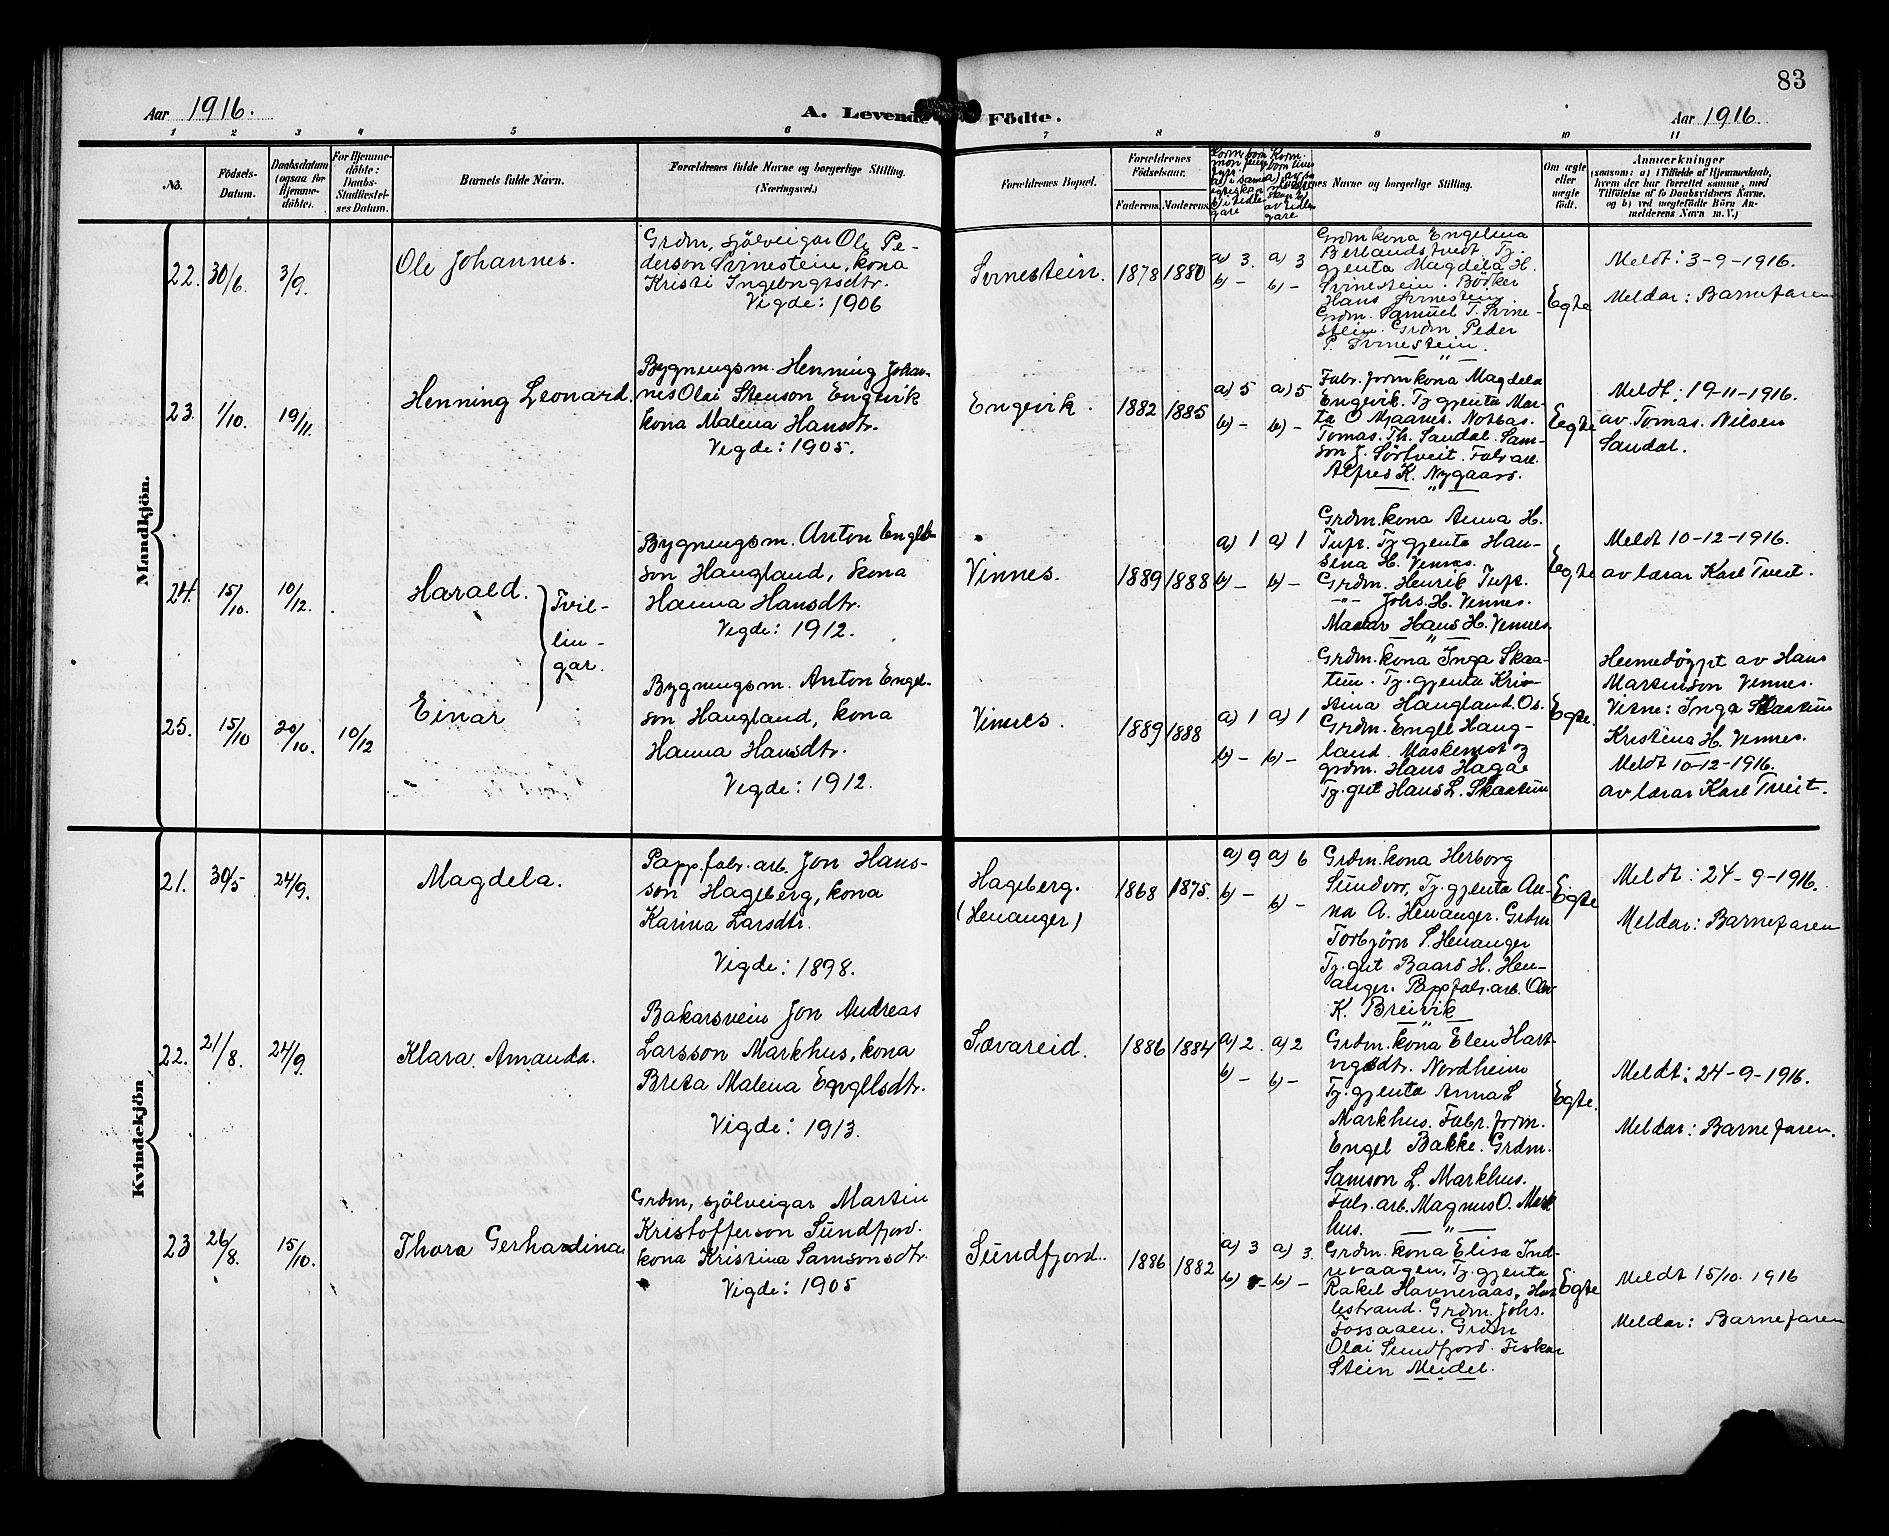 83
Aar 1916.
A. Levende Födte.
Aar 1916.
1 2 3 4 5 6 7 8 9 10 11
No.
Födsels-
Datum.
Daabsdatum
(ogsaa for
Hjemme-
döbte).
For Hjemme-
döbte:
Daabs-
Stadfæstel-
ses Datum.
Barnets fulde Navn.
Forældrenes fulde Navne og borgerlige Stilling.
(Næringsvei.)
Forældrenes Bopæl.
Forældrenes
Födselsaar.
Faderens. Moderens.
Navne og borgerlige Stilling.
Om ægte
eller
uægte
födt.
Anmærkninger
(saasom: a) i Tilfælde af Hjemmedaab,
hvem der har forrettet samme, med
Tilföielse af to Daabsvidners Navne.
og b) ved uægtefödte Börn An-
melderens Navn m. V.)
Mandkjön.
22. 30/6. 3/9.
Ole Johannes.
Grdm, sjölveigar Ole Pe-
derson Svinestein, kona
Kristi Ingebrigtsdtr.
Vigde: 1906
Svinestein. 1878 1880
a) 3. a) 3
b) – b) –
Grdm kona Engelina
Berlandstvedt. Tj.
gjenta Magdela H.
Svinestein. Bödker
Hans Svinestein.
Grdm. Samuel T. Svine-
stein. Grdm. Peder
P. Svinestein.
Egte
Meldt: 3-9-1916.
Meldar: Barnefaren
23. 1/10. 19/11.
Henning Leonard.
Bygningsm. Henning Johan-
nes Olai Stenson Engevik
kona Malena Hansdtr.
Vigde: 1905.
Engevik. 1882 1885
a) 5 a) 5
b) – b) –
Fabr. formkona Magdela
Engevik. Tj gjenta Mar-
ta O Mjaanes. Notbas.
Tomas. Th. Sandal. Sam-
son J. Sörtveit. Fabr arb.
Alfred K. Nygaard.
Egte
Meldt: 19-11-1916.
av Tomas. Nilsen
Sandal.
24. 15/10. 10/12.
Harald.
Tvil-
lin-
gar.
Bygningsm. Anton Engel-
son Haugland, kona
Hanna Hansdtr.
Vigde: 1912.
Vinnes. 1889 1888
a) 1 a) 1
b) – b) –
Grdm. kona Anna H.
Tuft. Tj gjenta Han-
sina H. Vinnes.
Grdm. Henrik Tuft.
–"– Johs. H. Vinnes.
Malar Hans H. Vinnes
Egte
Meldt 10-12-1916.
av lærar Karl Tveit.
25. 15/10 20/10. 10/12
Einar
Bygningsm. Anton Engel-
son Haugland, kona
Hanna Hansdtr.
Vigde: 1912.
Vinnes. 1889 1888
a) 1 a) 1
b) – b) –
Grdm. kona Inga Skaa-
tun. Tj. gjenta Kris-
tina Haugland. Os.
Grdm. Engel Haug-
land. Maskinist og
grdm. Hans Haga
Tj. gut Hans L. Skaatun
Egte.
Heimedöypt av Hans
Martinson Vinnes.
Vitne: Inga Skaatun
Kristina H. Vinnes.
Meldt 10-12-1916.
av lærar Karl Tveit.
Kvindekjön
21. 30/5 24/9.
Magdela.
Papp.fabr. arb. Jon Hans-
son Hageberg, kona
Karina Larsdtr.
Vigde: 1898.
Hageberg.
(Henanger)
1868 1875.
a) 9 a) 6
b) – b) –
Grdm. kona Herborg
Sundvor, Tj. gjenta An-
na A. Henanger. Grdm
Torbjörn S. Henanger
Tj. gut Baard H. Hen-
anger. Pappfabr. arb. Olav
K. Breivik
Egte
Meldt: 24-9-1916.
Meldar: Barnefaren
22. 21/8. 24/9.
Klara Amanda.
Bakarsvein Jon Andreas
Larsson Markhus, kona
Brita Malena Engelsdtr.
Vigde: 1913.
Sævareid. 1886 1884
a) 2. a) 2
b) – b) –
Grdm. kona Elen Hart-
vigsdtr. Nordheim
Tj. gjenta Anna L
Markhus. Fabr. form.
Engel Bakke. Grdm.
Samson L. Markhus.
Fabr. arb. Magnus O. Mark
hus.
Egte.
Meldt: 24-9-1916.
Meldar: Barnefaren.
23 26/8. 15/10.
Thora Gerhardina
Grdm, sjölveigar Martin
Kristofferson Sundfjord.
kona Kristina Samsonsdtr.
Vigde: 1905
Sundfjord. 1886 1882
a) 3 a) 3.
b) – b) –
Grdm. kona Elisa Ind-
revaagen, Tj. gjenta
Rakel Havneraas,
lestrand. Grdm. Johs.
Fossaaen. Grdm
Olai Sundfjord. Fiskar
Stein Meidel.
Egte
Meldt 15/10. 1916
Meldar: Barnefaren